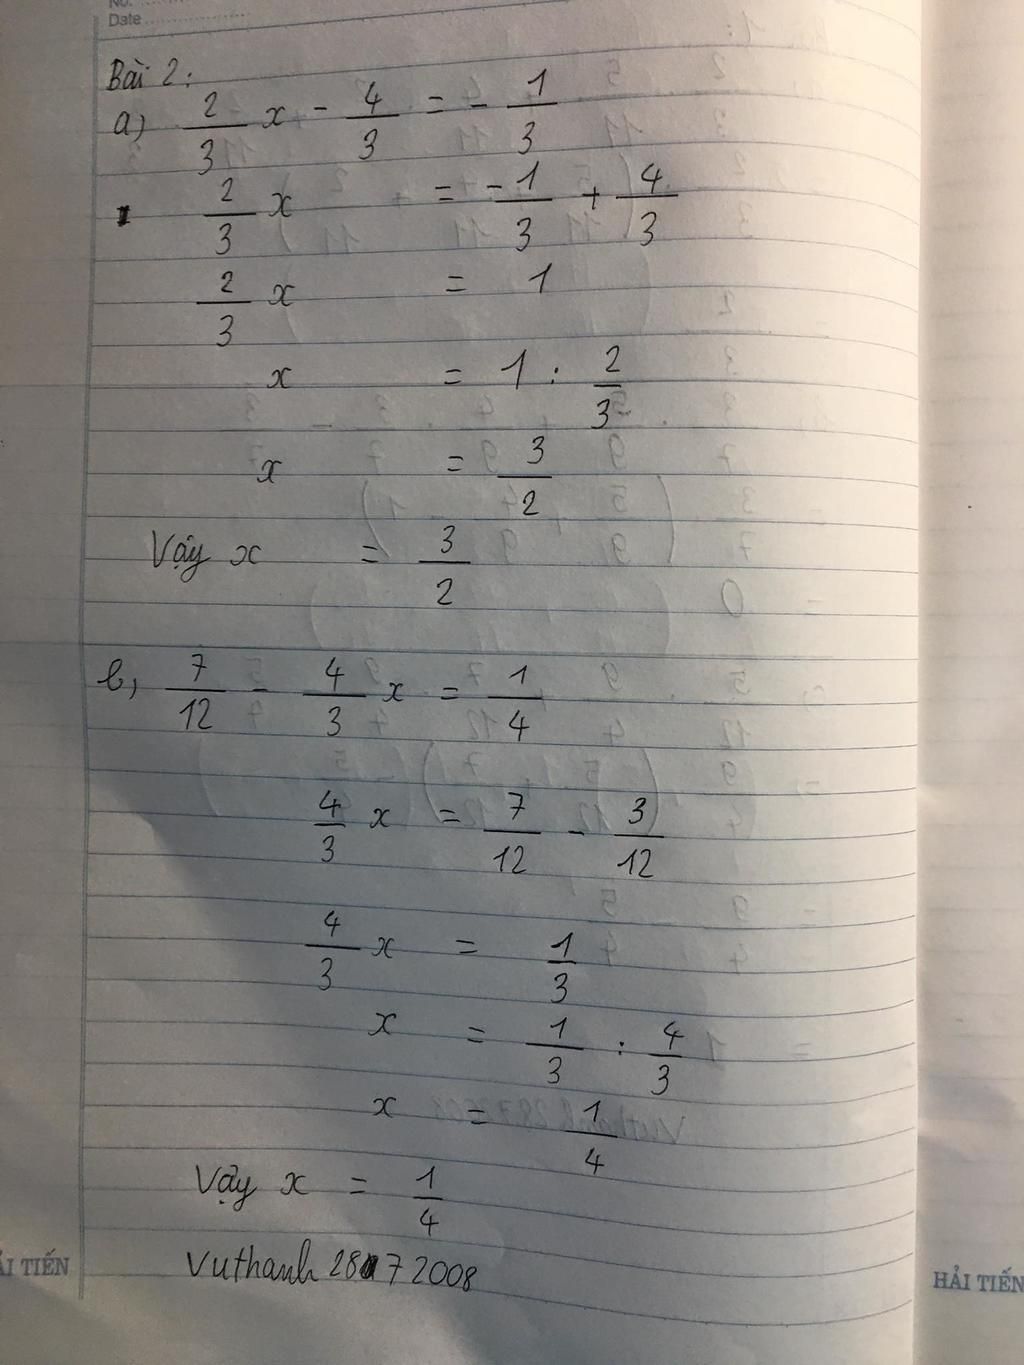 No.
Date
Bài 2:
a) 2/3 x - 4/3 = - 1/3
2/3 x = - 1/3 + 4/3
2/3 x = 1
x = 1 : 2/3
x = 3/2
Vậy x = 3/2
b, 7/12 - 4/3 x = 1/4
4/3 x = 7/12 - 3/12
4/3 x = 1/3
x = 1/3 : 4/3
x = 1/4
Vậy x = 1/4
Vuthanh 28 7 2008
ẢI TIẾN
HẢI TIẾN